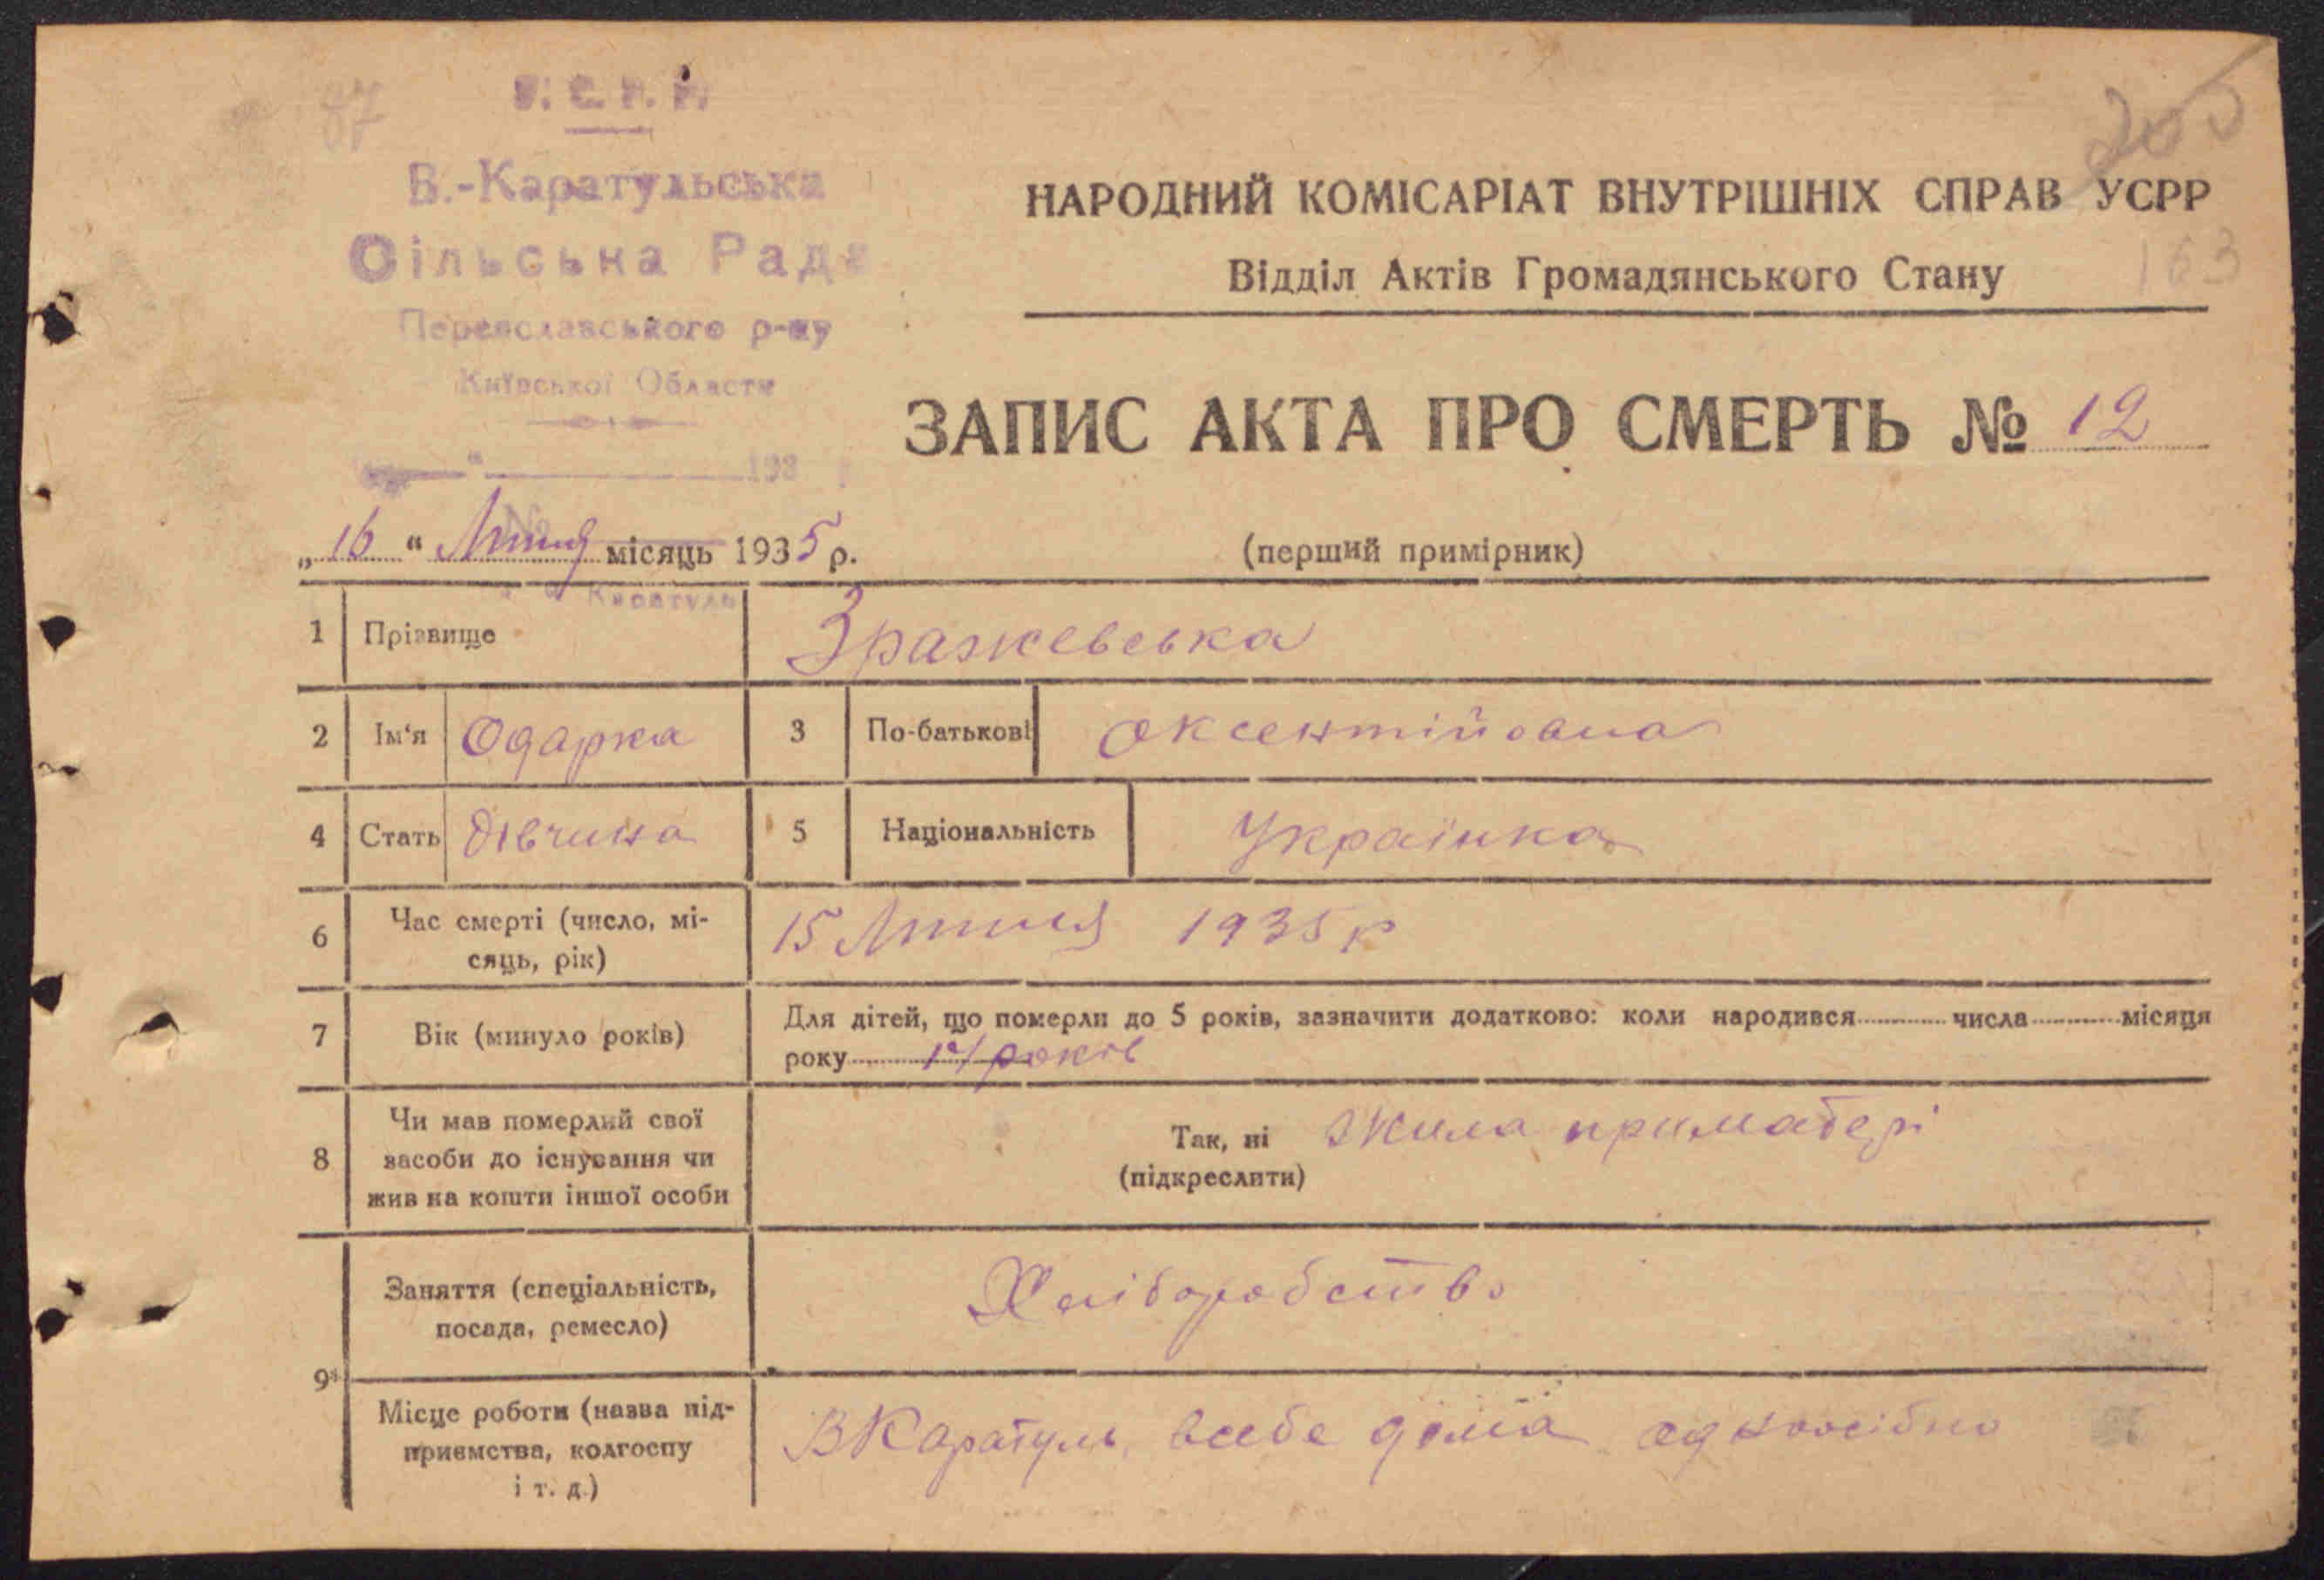 87
У. С. Р. Р.
205
В.-Каратульська
Сільська Рада
Переяславського р-ну
Київської Области
193
НАРОДНИЙ КОМІСАРІАТ ВНУТРІШНІХ СПРАВ УСРР
Відділ Актів Громадянського Стану
163
ЗАПИС АКТА ПРО СМЕРТЬ № 12
„16“ Липня місяць 1935 р.
(перший примірник)
Каратуль
1 Прізвище Зражевська
2 Ім‘я Одарка 3 По-батькові Оксентійовна
4 Стать дівчина 5 Національність Українка
6 Час смерті (число, мі-
сяць, рік) 15 Липня 1935 р
7 Вік (минуло років) Для дітей, що померли до 5 років, зазначити додатково: коли народився числа місяця
року років
8 Чи мав померлий свої
засоби до існування чи
жив на кошти іншої особи
Так, ні жила при матері
(підкреслити)
9 Заняття (спеціальність,
посада, ремесло) Хліборобство
Місце роботи (назва під-
приємства, колгоспу
і т. д.) В Каратуль, всебе дома одноосібно